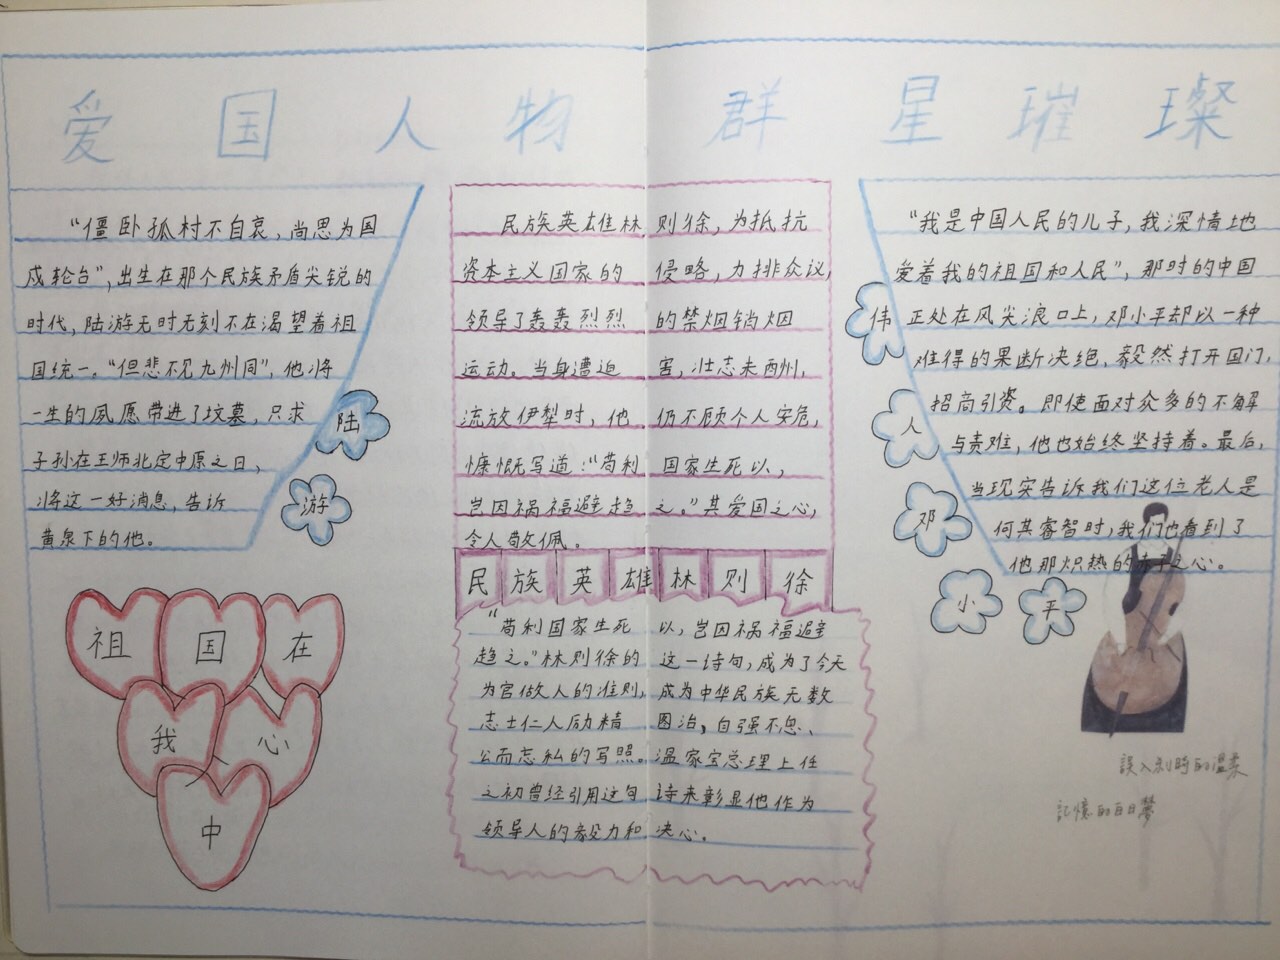 爱国人物 群星璀璨
“僵卧孤村不自哀，尚思为国
戍轮台”，出生在那个民族矛盾尖锐的
时代，陆游无时无刻不在渴望着祖
国统一。“但悲不见九州同”，他将
一生的夙愿带进了坟墓，只求
子孙在王师北定中原之日，
将这一好消息，告诉
黄泉下的他。
陆
游
祖国在
我心
中
民族英雄林则徐，为抵抗
资本主义国家的侵略，力排众议，
领导了轰轰烈烈的禁烟销烟
运动。当身遭迫害，壮志未酬州，
流放伊犁时，他仍不顾个人安危，
慷慨写道：“苟利国家生死以，
岂因祸福避趋之。”其爱国之心，
令人敬佩。
民族英雄林则徐
“苟利国家生死以，岂因祸福避
趋之。”林则徐的这一诗句，成为了今天
为官做人的准则，成为中华民族无数
志士仁人励精图治，自强不息、
公而忘私的写照。温家宝总理上任
之初曾经引用这句诗来彰显他作为
领导人的毅力和决心。
“我是中国人民的儿子，我深情地
爱着我的祖国和人民”，那时的中国
正处在风尖浪口上，邓小平却以一种
难得的果断决绝，毅然打开国门，
招商引资。即使面对众多的不解
与责难，他也始终坚持着。最后，
当现实告诉我们这位老人是
何其睿智时，我们也看到了
他那炽热的赤子之心。
伟
人
邓
小
平
誤入刹時的溫柔
記憶的白日夢